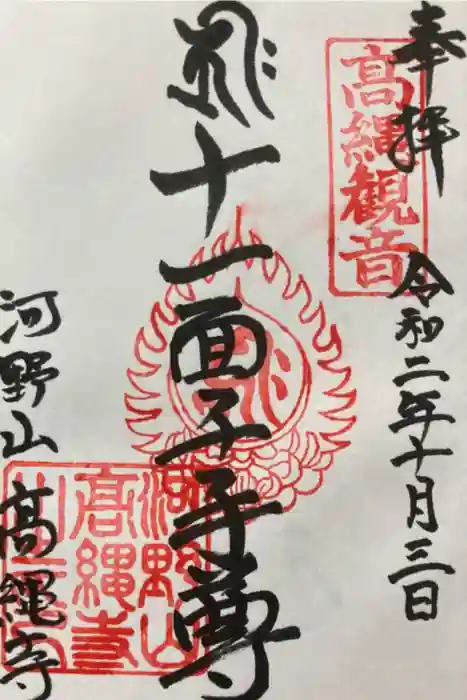 奉拝
高縄観音
令和二年十月三日
十一面千手尊
河野山
高縄寺
河野山 高縄寺